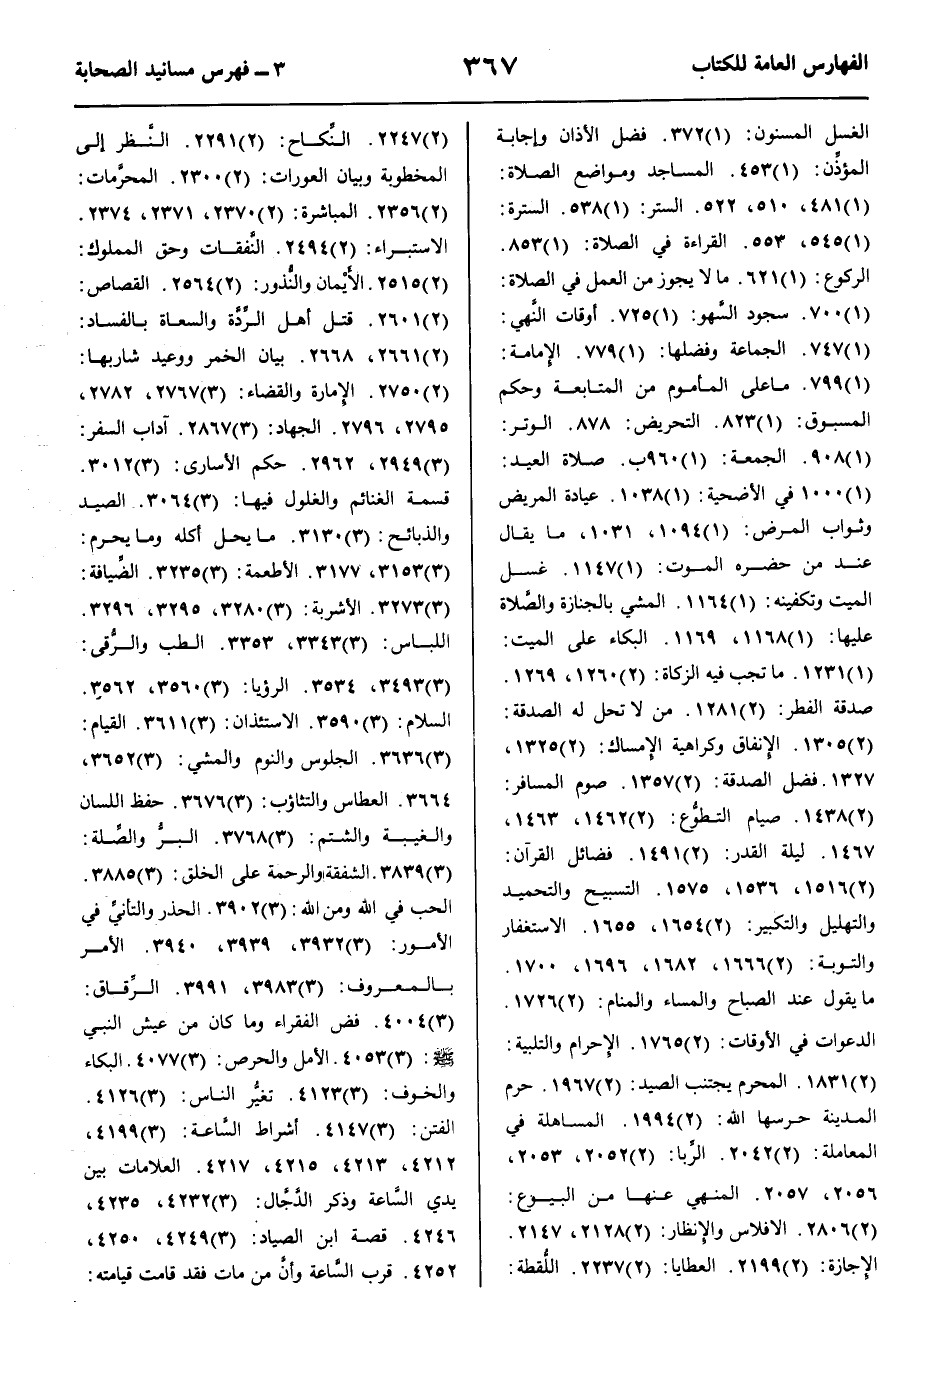 الفهارس العامة للكتاب
٣٦٧
٣ ــ فهرس مسانيد الصحابة
الغسل المسنون: (١)٣٧٢. فضل الأذان وإجابة
المؤذِّن: (١)٤٥٣. المساجد ومواضع الصلاة:
(١)٤٨١، ٥١٠، ٥٢٢. الستر: (١)٥٣٨. السترة:
(١)٥٤٥، ٥٥٣. القراءة في الصلاة: (١)٨٥٣.
الركوع: (١)٦٢١. ما لا يجوز من العمل في الصلاة:
(١)٧٠٠. سجود السَّهو: (١)٧٢٥. أوقات النَّهي:
(١)٧٤٧. الجماعة وفضلها: (١)٧٧٩. الإمامة:
(١)٧٩٩. ماعلى المأموم من المتابعة وحكم
المسبوق: (١)٨٢٣. التحريض: ٨٧٨. الوتر:
(١)٩٠٨. الجمعة: (١)٩٦٠ب. صلاة العيد:
(١)١٠٠٠ في الأضحية: (١)١٠٣٨. عيادة المريض
وثواب المرض: (١)١٠٩٤، ١٠٣١، ما يقال
عند من حضره الموت: (١)١١٤٧. غسل
الميت وتكفينه: (١)١١٦٤. المشي بالجنازة والصَّلاة
عليها: (١)١١٦٨، ١١٦٩. البكاء على الميت:
(١)١٢٣١. ماتجب فيه الزكاة: (٢)١٢٦٠، ١٢٦٩.
صدقة الفطر: (٢)١٢٨١. من لا تحل له الصدقة:
(٢)١٣٠٥. الإنفاق وكراهية الإمساك: (٢)١٣٢٥،
١٣٢٧.فضل الصدقة: (٢)١٣٥٧. صوم المسافر:
(٢)١٤٣٨. صيام التطوُّع: (٢)١٤٦٢، ١٤٦٣،
١٤٦٧. ليلة القدر: (٢)١٤٩١. فضائل القرآن:
(٢)١٥١٦، ١٥٣٦، ١٥٧٥. التسبيح والتحميد
والتهليل والتكبير: (٢)١٦٥٤، ١٦٥٥. الاستغفار
والتوبة: (٢)١٦٦٦، ١٦٨٢، ١٦٩٦، ١٧٠٠.
ما يقول عند الصباح والمساء والمنام: (٢)١٧٢٦.
الدعوات في الأوقات: (٢)١٧٦٥. الإحرام والتلبية:
(٢)١٨٣١. المحرم يجتنب الصيد: (٢)١٩٦٧. حرم
المدينة حرسها الله: (٢)١٩٩٤. المساهلة في
المعاملة: (٢)٢٠٤٢. الرِّبا: (٢)٢٠٥٢، ٢٠٥٣،
٢٠٥٦، ٢٠٥٧. المنهي عنها من البيوع:
(٢)٢٨٠٦. الافلاس والإنظار: (٢)٢١٢٨، ٢١٤٧.
الإجازة: (٢)٢١٩٩. العطايا: (٢)٢٢٣٧. اللُّقطة:
(٢)٢٢٤٧. النِّكاح: (٢)٢٢٩١. النَّظر إلى
المخطوبة وبيان العورات: (٢)٢٣٠٠. المحرَّمات:
(٢)٢٣٥٦. المباشرة: (٢)٢٣٧٠، ٢٣٧١، ٢٣٧٤.
الاستبراء: (٢)٢٤٩٤. النَّفقات وحق المملوك:
(٢)٢٥١٥.الأيْمان والنُّذور: (٢)٢٥٦٤. القصاص:
(٢)٢٦٠١. قتل أهل الرِّدَّة والسعاة بالفساد:
(٢)٢٦٦١، ٢٦٦٨. بيان الخمر ووعيد شاربها:
(٢)٢٧٥٠. الإمارة والقضاء: (٣)٢٧٦٧، ٢٧٨٢،
٢٧٩٥، ٢٧٩٦. الجهاد: (٣)٢٨٦٧. آداب السفر:
(٣)٢٩٤٩، ٢٩٦٢. حكم الأسارى: (٣)٣٠١٢.
قسمة الغنائم والغلول فيها: (٣)٣٠٦٤. الصيد
والذبائح: (٣)٣١٣٠. مايحل أكله ومايحرم:
(٣)٣١٥٣، ٣١٧٧. الأطعمة: (٣)٣٢٣٥. الضِّيافة:
(٣)٣٢٧٣. الأشربة: (٣)٣٢٨٠، ٣٢٩٥، ٣٢٩٦.
اللباس: (٣)٣٣٤٣، ٣٣٥٣. الطب والرُّقى:
(٣)٣٤٩٣، ٣٥٣٤. الرؤيا: (٣)٣٥٦٠، ٣٥٦٢.
السلام: (٣)٣٥٩٠. الاستئذان: (٣)٣٦١١. القيام:
(٣)٣٦٣٦. الجلوس والنوم والمشي: (٣)٣٦٥٢،
٣٦٦٤. العطاس والتثاؤب: (٣)٣٦٧٦. حفظ اللسان
والغيبة والشتم: (٣)٣٧٦٨. البرُّ والصِّلة:
(٣)٣٨٣٩.الشفقة والرحمة على الخلق: (٣)٣٨٨٥.
الحب في الله ومن الله: (٣)٣٩٠٢. الحذر والتأنيِّ في
الأمور: (٣)٣٩٣٢، ٣٩٣٩، ٣٩٤٠. الأمر
بالمعروف: (٣)٣٩٨٣، ٣٩٩١. الرِّقاق:
(٣)٤٠٠٤. فض الفقراء وما كان من عيش النبي
ﷺ: (٣)٤٠٥٣. الأمل والحرص: (٣)٤٠٧٧. البكاء
والخوف: (٣)٤١٢٣. تغيُّر الناس: (٣)٤١٢٦.
الفتن: (٣)٤١٤٧. أشراط السَّاعة: (٣)٤١٩٩،
٤٢١٢، ٤٢١٣، ٤٢١٥، ٤٢١٧. العلامات بين
يدي السَّاعة وذكر الدَّجَّال: (٣)٤٢٣٢، ٤٢٣٥،
٤٢٤٦. قصة ابن الصياد: (٣)٤٢٤٩، ٤٢٥٠،
٤٢٥٢. قرب السَّاعة وأنَّ من مات فقد قامت قيامته: